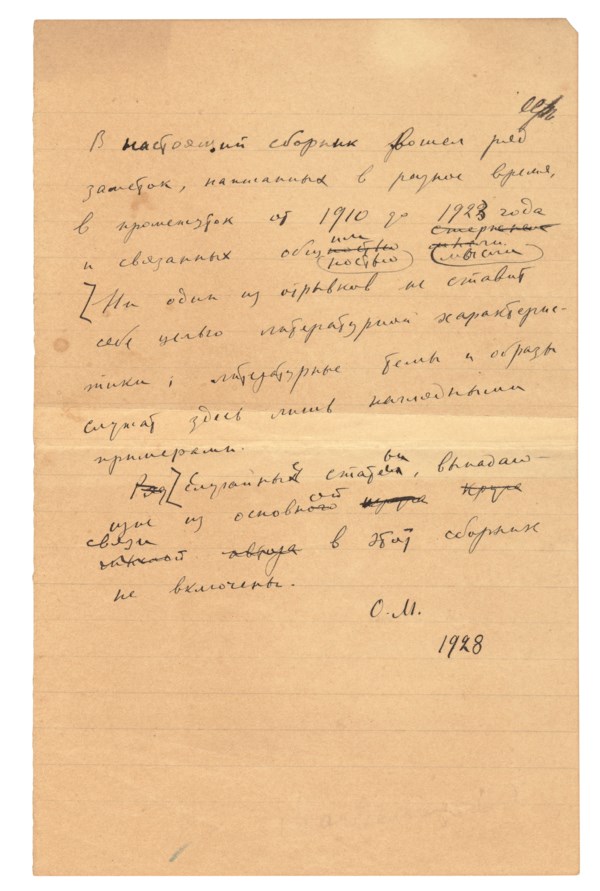 В настоящий сборник вошел ряд
заметок, написанных в разное время,
в промежуток от 1910 до 1923 года
и связанных общностью мысли
Ни один из отрывков не ставит
себе целью литературной характерис-
тики; литературные темы и образы
служат здесь лишь наглядными
примерами.
Ряд Случайные статьи, выпадаю-
щие из основной круга
связи автора в этот сборник
не включены.
О.М.
1928